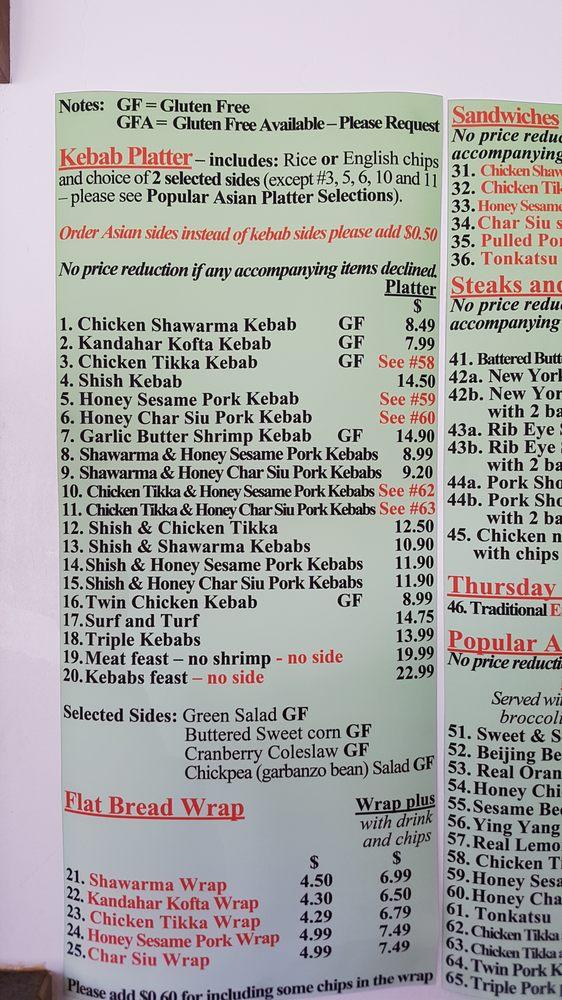 Notes: GF = Gluten Free
GFA = Gluten Free Available – Please Request
Kebab Platter – includes: Rice or English chips
and choice of 2 selected sides (except #3, 5, 6, 10 and 11
– please see Popular Asian Platter Selections).
Order Asian sides instead of kebab sides please add $0.50
No price reduction if any accompanying items declined.
Platter
$
1. Chicken Shawarma Kebab GF 8.49
2. Kandahar Kofta Kebab GF 7.99
3. Chicken Tikka Kebab GF See #58
4. Shish Kebab 14.50
5. Honey Sesame Pork Kebab See #59
6. Honey Char Siu Pork Kebab See #60
7. Garlic Butter Shrimp Kebab GF 14.90
8. Shawarma & Honey Sesame Pork Kebabs 8.99
9. Shawarma & Honey Char Siu Pork Kebabs 9.20
10. Chicken Tikka & Honey Sesame Pork Kebabs See #62
11. Chicken Tikka & Honey Char Siu Pork Kebabs See #63
12. Shish & Chicken Tikka 12.50
13. Shish & Shawarma Kebabs 10.90
14. Shish & Honey Sesame Pork Kebabs 11.90
15. Shish & Honey Char Siu Pork Kebabs 11.90
16. Twin Chicken Kebab GF 8.99
17. Surf and Turf 14.75
18. Triple Kebabs 13.99
19. Meat feast – no shrimp - no side 19.99
20. Kebabs feast – no side 22.99
Selected Sides: Green Salad GF
Buttered Sweet corn GF
Cranberry Coleslaw GF
Chickpea (garbanzo bean) Salad GF
Flat Bread Wrap
Wrap plus
with drink
and chips
$ $
21. Shawarma Wrap 4.50 6.99
22. Kandahar Kofta Wrap 4.30 6.50
23. Chicken Tikka Wrap 4.29 6.79
24. Honey Sesame Pork Wrap 4.99 7.49
25. Char Siu Wrap 4.99 7.49
Please add $0.60 for including some chips in the wrap
Sandwiches
No price
accompanying
31. Chicken
32. Chicken
33. Honey Sesame
34. Char Siu
35. Pulled
36. Tonkatsu
Steaks
No price
accompanying
41. Battered
42a. New
42b. New
with 2
43a. Rib Eye
43b. Rib Eye
with 2
44a. Pork
44b. Pork
with 2
45. Chicken
with chips
Thursday
46. Traditional
Popular
No price
Served
51. Sweet &
52. Beijing
53. Real
54. Honey
55. Sesame
56. Ying Yang
57. Real
58. Chicken
59. Honey
60. Honey
61. Tonkatsu
62. Chicken Tikka
63. Chicken Tikka
64. Twin Pork
65. Triple Pork